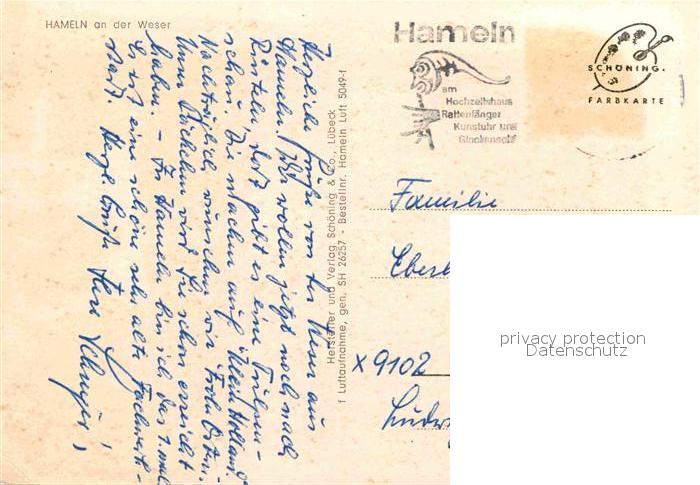 HAMELN an der Weser
Herzliche Grüße von der Weser aus
Hameln. Wir wollen jetzt noch nach
Rinteln, dort gibt es eine Tulpen-
schau. Die machen auf "Klein Holland".
Nachträglich wünschen wir Frohe Ostern.
Unser Päckchen wird Sie schon erreicht
haben. – In Hameln bin ich das 1. mal
Es ist eine schöne sehr alte Fachwerk-
stadt. Herzl. Grüße Ihre
Hersteller und Verlag Schöning & Co., Lübeck
f Luftaufnahme, gen. SH 26257 - Bestellnr. Hameln Luft 5049-f
Hameln
am
Hochzeitshaus
Rattenfänger
Kunstuhr und
Glockenspiel
SCHÖNING-
FARBKARTE
Familie
X 9102
privacy protection
Datenschutz